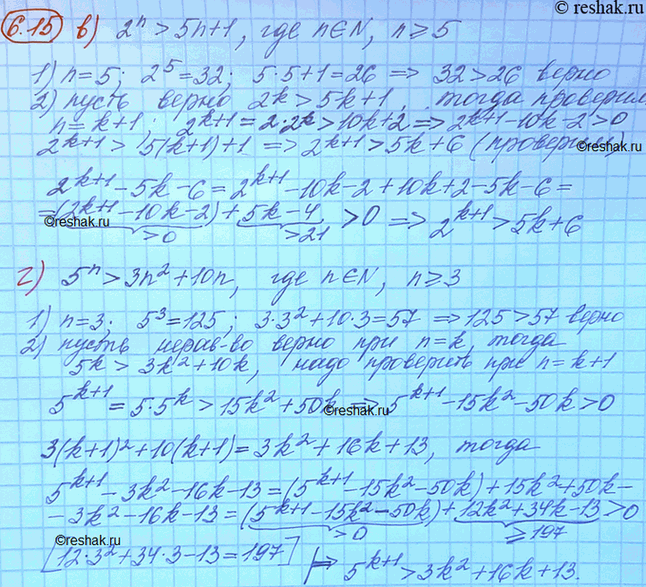 © reshak.ru
6.15 в) 2ⁿ > 5n+1, где n∈N, n ≥ 5
1) n=5; 2⁵=32; 5·5+1=26 ⇒ 32>26 верно
2) пусть верно 2ᵏ > 5k+1, тогда проверим
n=k+1; 2ᵏ⁺¹=2·2ᵏ>10k+2 ⇒ 2ᵏ⁺¹-10k-2>0
2ᵏ⁺¹ > 5(k+1)+1 ⇒ 2ᵏ⁺¹ > 5k+6 (проверим)
©reshak.ru
2ᵏ⁺¹-5k-6=2ᵏ⁺¹-10k-2+10k+2-5k-6=
=(2ᵏ⁺¹-10k-2)+5k-4 >0 ⇒ 2ᵏ⁺¹>5k+6
©reshak.ru
>0 >21
г) 5ⁿ > 3n²+10n, где n∈N, n ≥ 3
1) n=3; 5³=125; 3·3²+10·3=57 ⇒ 125>57 верно
2) пусть нерав-во верно при n=k, тогда
5k > 3k²+10k, надо проверить при n=k+1
5ᵏ⁺¹ = 5·5ᵏ > 15k²+50k ⇒ 5ᵏ⁺¹-15k²-50k>0
©reshak.ru
3(k+1)²+10(k+1)=3k²+16k+13, тогда
5ᵏ⁺¹-3k²-16k-13=(5ᵏ⁺¹-15k²-50k)+15k²+50k-
-3k²-16k-13=(5ᵏ⁺¹-15k²-50k)+12k²+34k-13>0
>0 ≥197
[12·3²+34·3-13=197] ⇒ 5ᵏ⁺¹>3k²+16k+13.